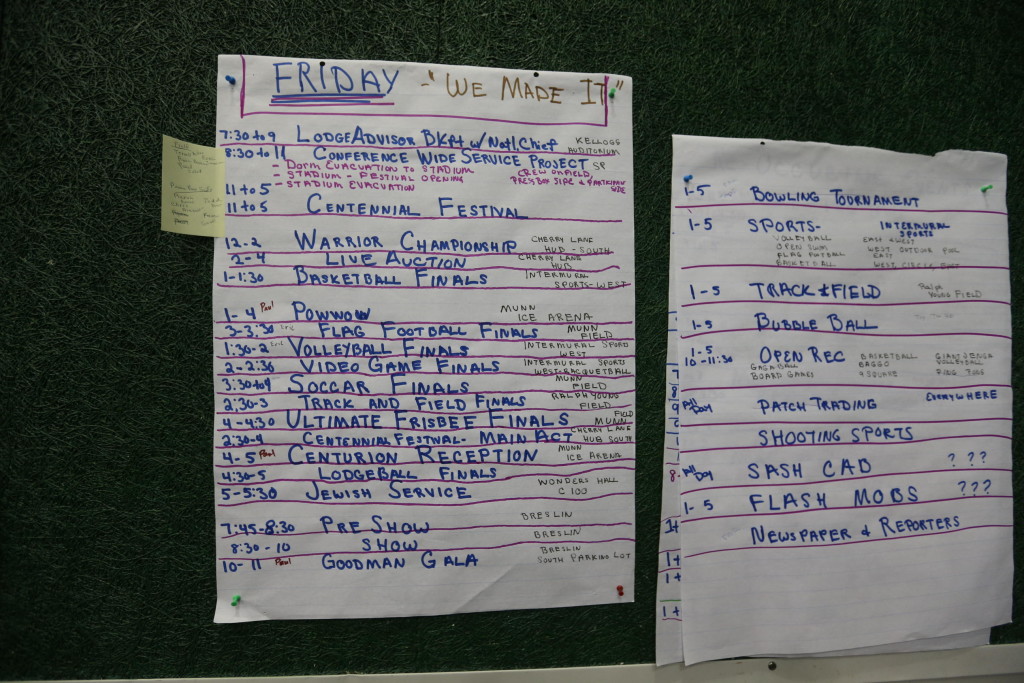 FRIDAY - "WE MADE IT"
7:30 to 9 LODGE ADVISOR BKFT w/ Nat'l. Chief KELLOGG AUDITORIUM
8:30 to 11 CONFERENCE WIDE SERVICE PROJECT
- DORM EVACUATION TO STADIUM CREW ON FIELD
- STADIUM - FESTIVAL OPENING PRESS BOX SIDE &
11 to 5 - STADIUM EVACUATION
11 to 5 CENTENNIAL FESTIVAL
12-2 WARRIOR CHAMPIONSHIP CHERRY LANE HUB - SOUTH
2-4 LIVE AUCTION CHERRY LANE HUB
1-1:30 BASKETBALL FINALS INTERMURAL SPORTS-WEST
1-4 Paul POWWOW MUNN ICE ARENA
3-3:30 Eric FLAG FOOTBALL FINALS MUNN FIELD
1:30-2 Eric VOLLEYBALL FINALS INTERMURAL SPORD WEST
2-2:30 VIDEO GAME FINALS INTERMURAL SPORTS WEST-RACQUETBALL
3:30 to 4 SOCCAR FINALS MUNN FIELD
2:30-3 TRACK AND FIELD FINALS RALPH YOUNG FIELD
4-4:30 ULTIMATE FRISBEE FINALS FIELD MUNN
2:30-4 CENTENNIAL FESTIVAL- MAIN ACT CHERRY LANE HUB SOUTH
4-5 Paul CENTURION RECEPTION MUNN ICE ARENA
4:30-5 LODGEBALL FINALS
5-5:30 JEWISH SERVICE WONDERS HALL C 100
7:45-8:30 PRE SHOW BRESLIN
8:30-10 SHOW BRESLIN
10-11 Paul GOODMAN GALA BRESLIN SOUTH PARKING LOT
1-5 BOWLING TOURNAMENT
1-5 SPORTS- INTERMURAL SPORTS
VOLLEYBALL EAST & WEST
OPEN SWIM WEST OUTDOOR POOL
FLAG FOOTBALL EAST
BASKETBALL WEST CIRCLE, EAST
1-5 TRACK & FIELD Ralph YOUNG FIELD
1-5 BUBBLE BALL
1-5 10-11:30 OPEN REC BASKETBALL GIANT JENGA
GAGA BALL BAGGO VOLLEYBALL
BOARD GAMES 4 SQUARE PING PONG
All DAY PATCH TRADING EVERYWHERE
SHOOTING SPORTS
All DAY SASH CAD ? ??
1-5 FLASH MOBS ???
NEWSPAPER & REPORTERS